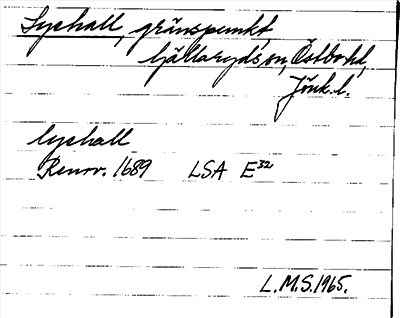 Lyshall, gränspunkt,
Kjällaryds sn, Östbo hd,
Jönk. l.
lyshall
Renov. 1689 LSA E³²
L.M.S. 1965.